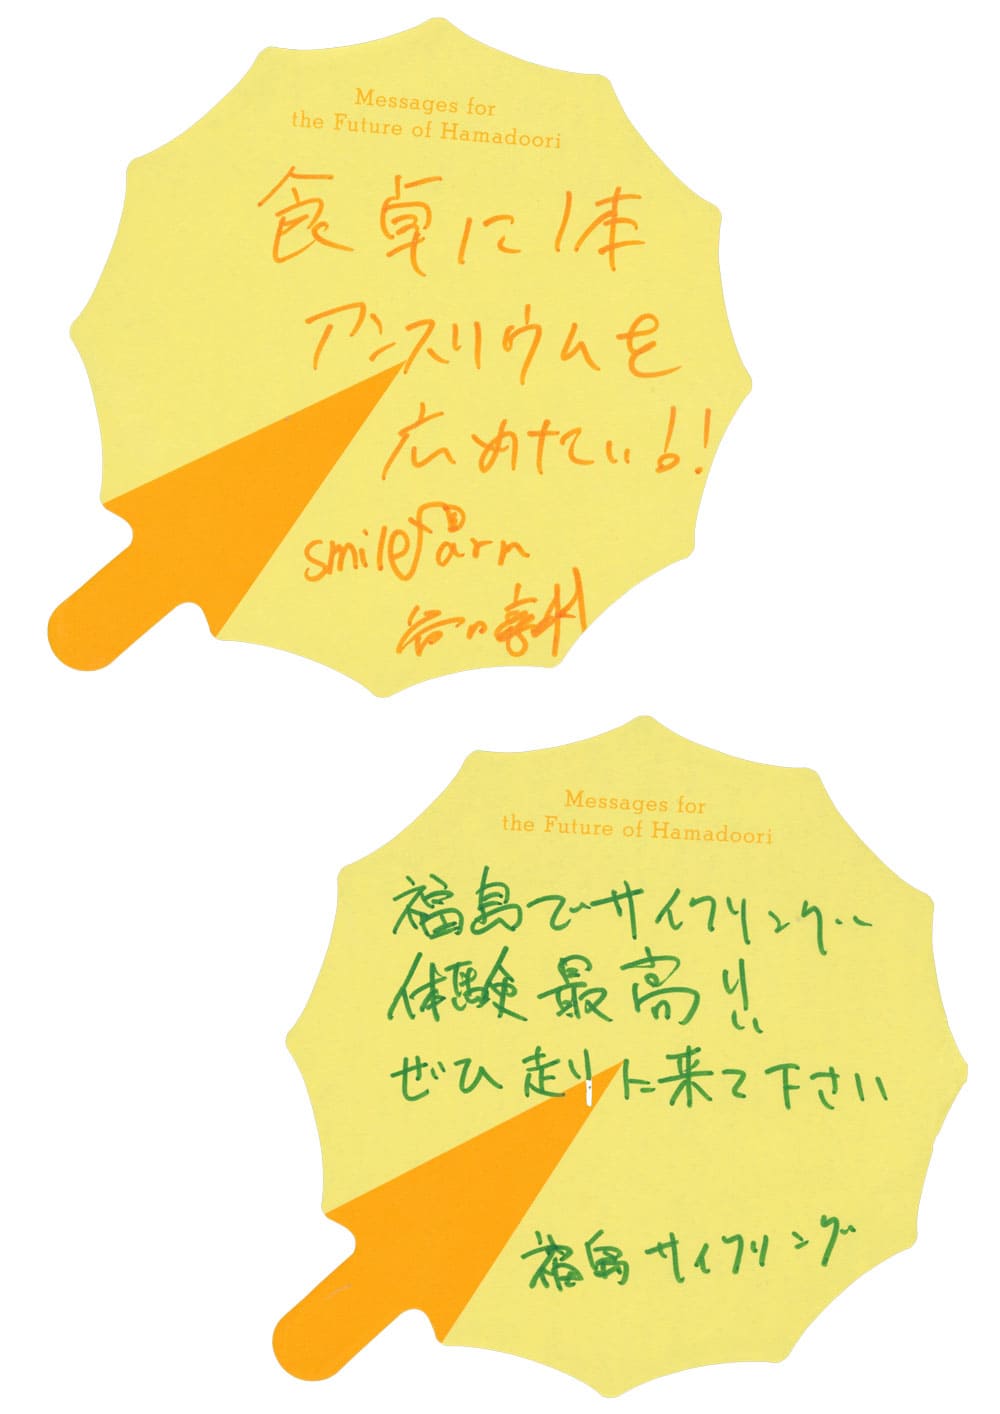 Messages for
the Future of Hamadoori
食卓に1本
アンスリウムを
広めたい!!
smilefarm
谷口
Messages for
the Future of Hamadoori
福島でサイクリング
体験最高!!
ぜひ走りに来て下さい
福島サイクリング